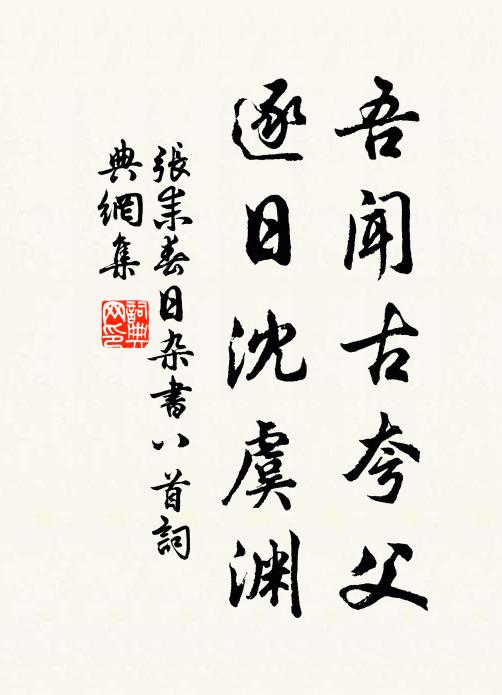 吾闻古夸父
逐日沈虞渊
張耒春日杂書八首詞
典網集
詞典
网印